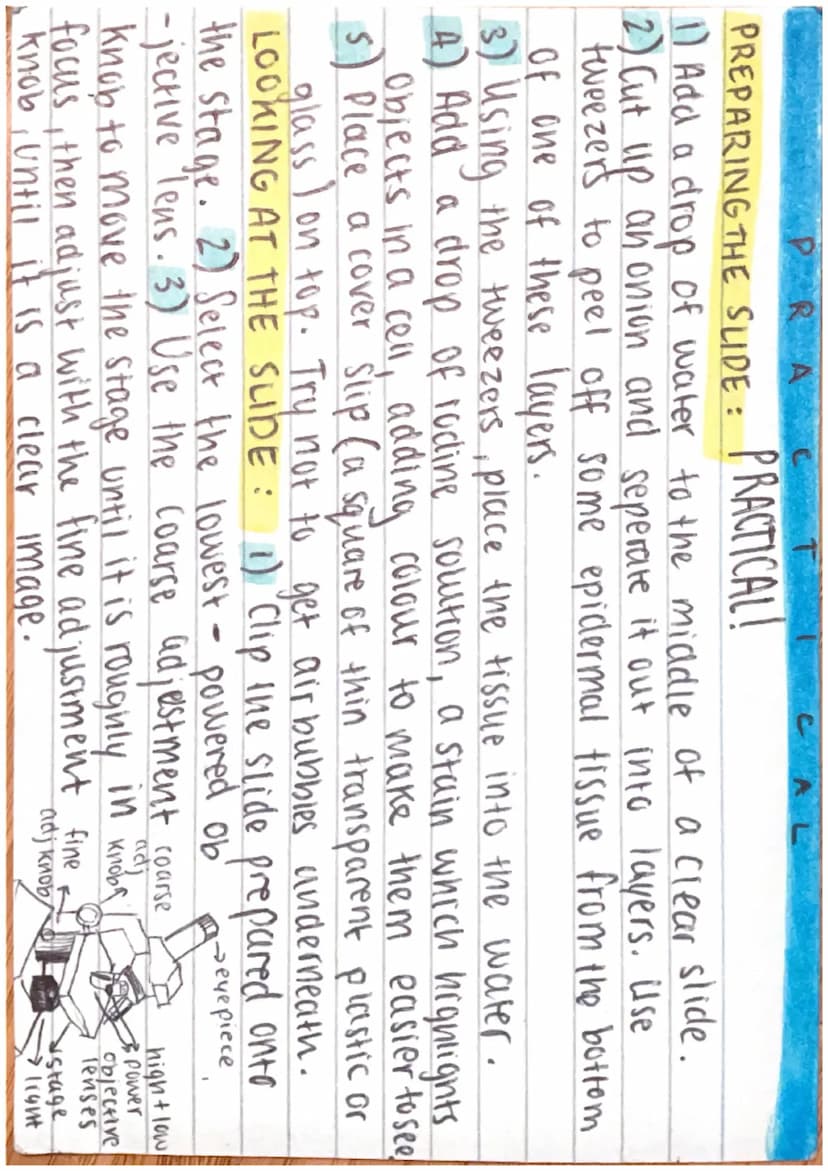 PRACTICAL
PREPARING THE SLIDE: PRACTICAL!
1) Add a drop of water to the middle of a clear slide.
2) Cut up an onion and seperate it out into layers. Use
tweezers to peel off some epidermal tissue from the bottom
of one of these layers.
3) Using the tweezers, place the tissue into the water.
4) Add a drop of iodine solution, a stain which highlights
objects in a cell, adding colour to make them easier to see
5) Place a cover slip (a square of thin transparent plastic or
glass) on top. Try not to get air bubbles underneath.
LOOKING AT THE SLIDE: 1) Clip the slide prepared onto
the stage. 2) Select the lowest-powered ob
-jective lens. 3) Use the coarse adjestment
knob to move the stage until it is roughly in
focus, then adjust with the fine adjustment
knob, until it is a clear image.
eyepiece
coarse
adj
knob
fine
adj knob
high + low
power
objective
lenses
stage
light